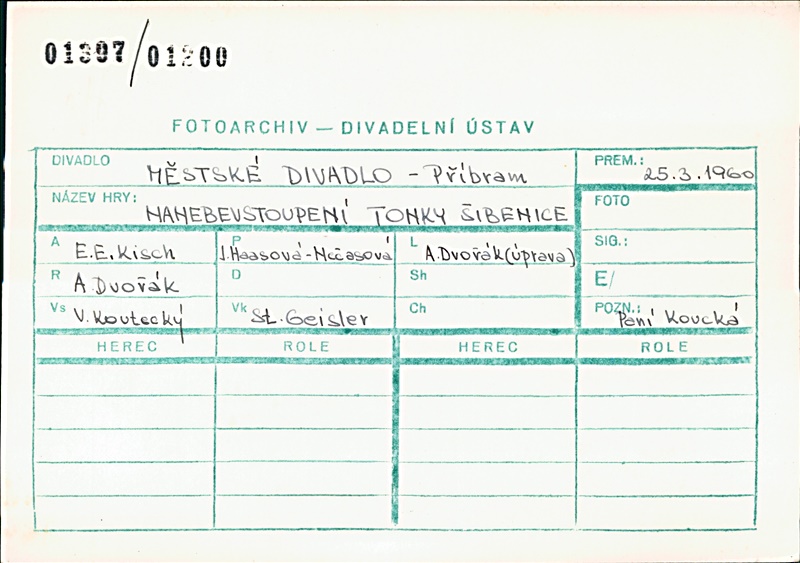 01397/01200
FOTOARCHIV — DIVADELNÍ ÚSTAV
DIVADLO MĚSTSKÉ DIVADLO - Příbram PREM.: 25.3.1960
NÁZEV HRY: NANEBEVSTOUPENÍ TONKY ŠIBENICE FOTO
A E.E.Kisch P J.Haasová-Nečasová L A.Dvořák(úprava) SIG.:
R A.Dvořák D Sh E/
Vs V.Koutecký Vk St.Geisler Ch POZN.: Paní Koucká
HEREC ROLE HEREC ROLE